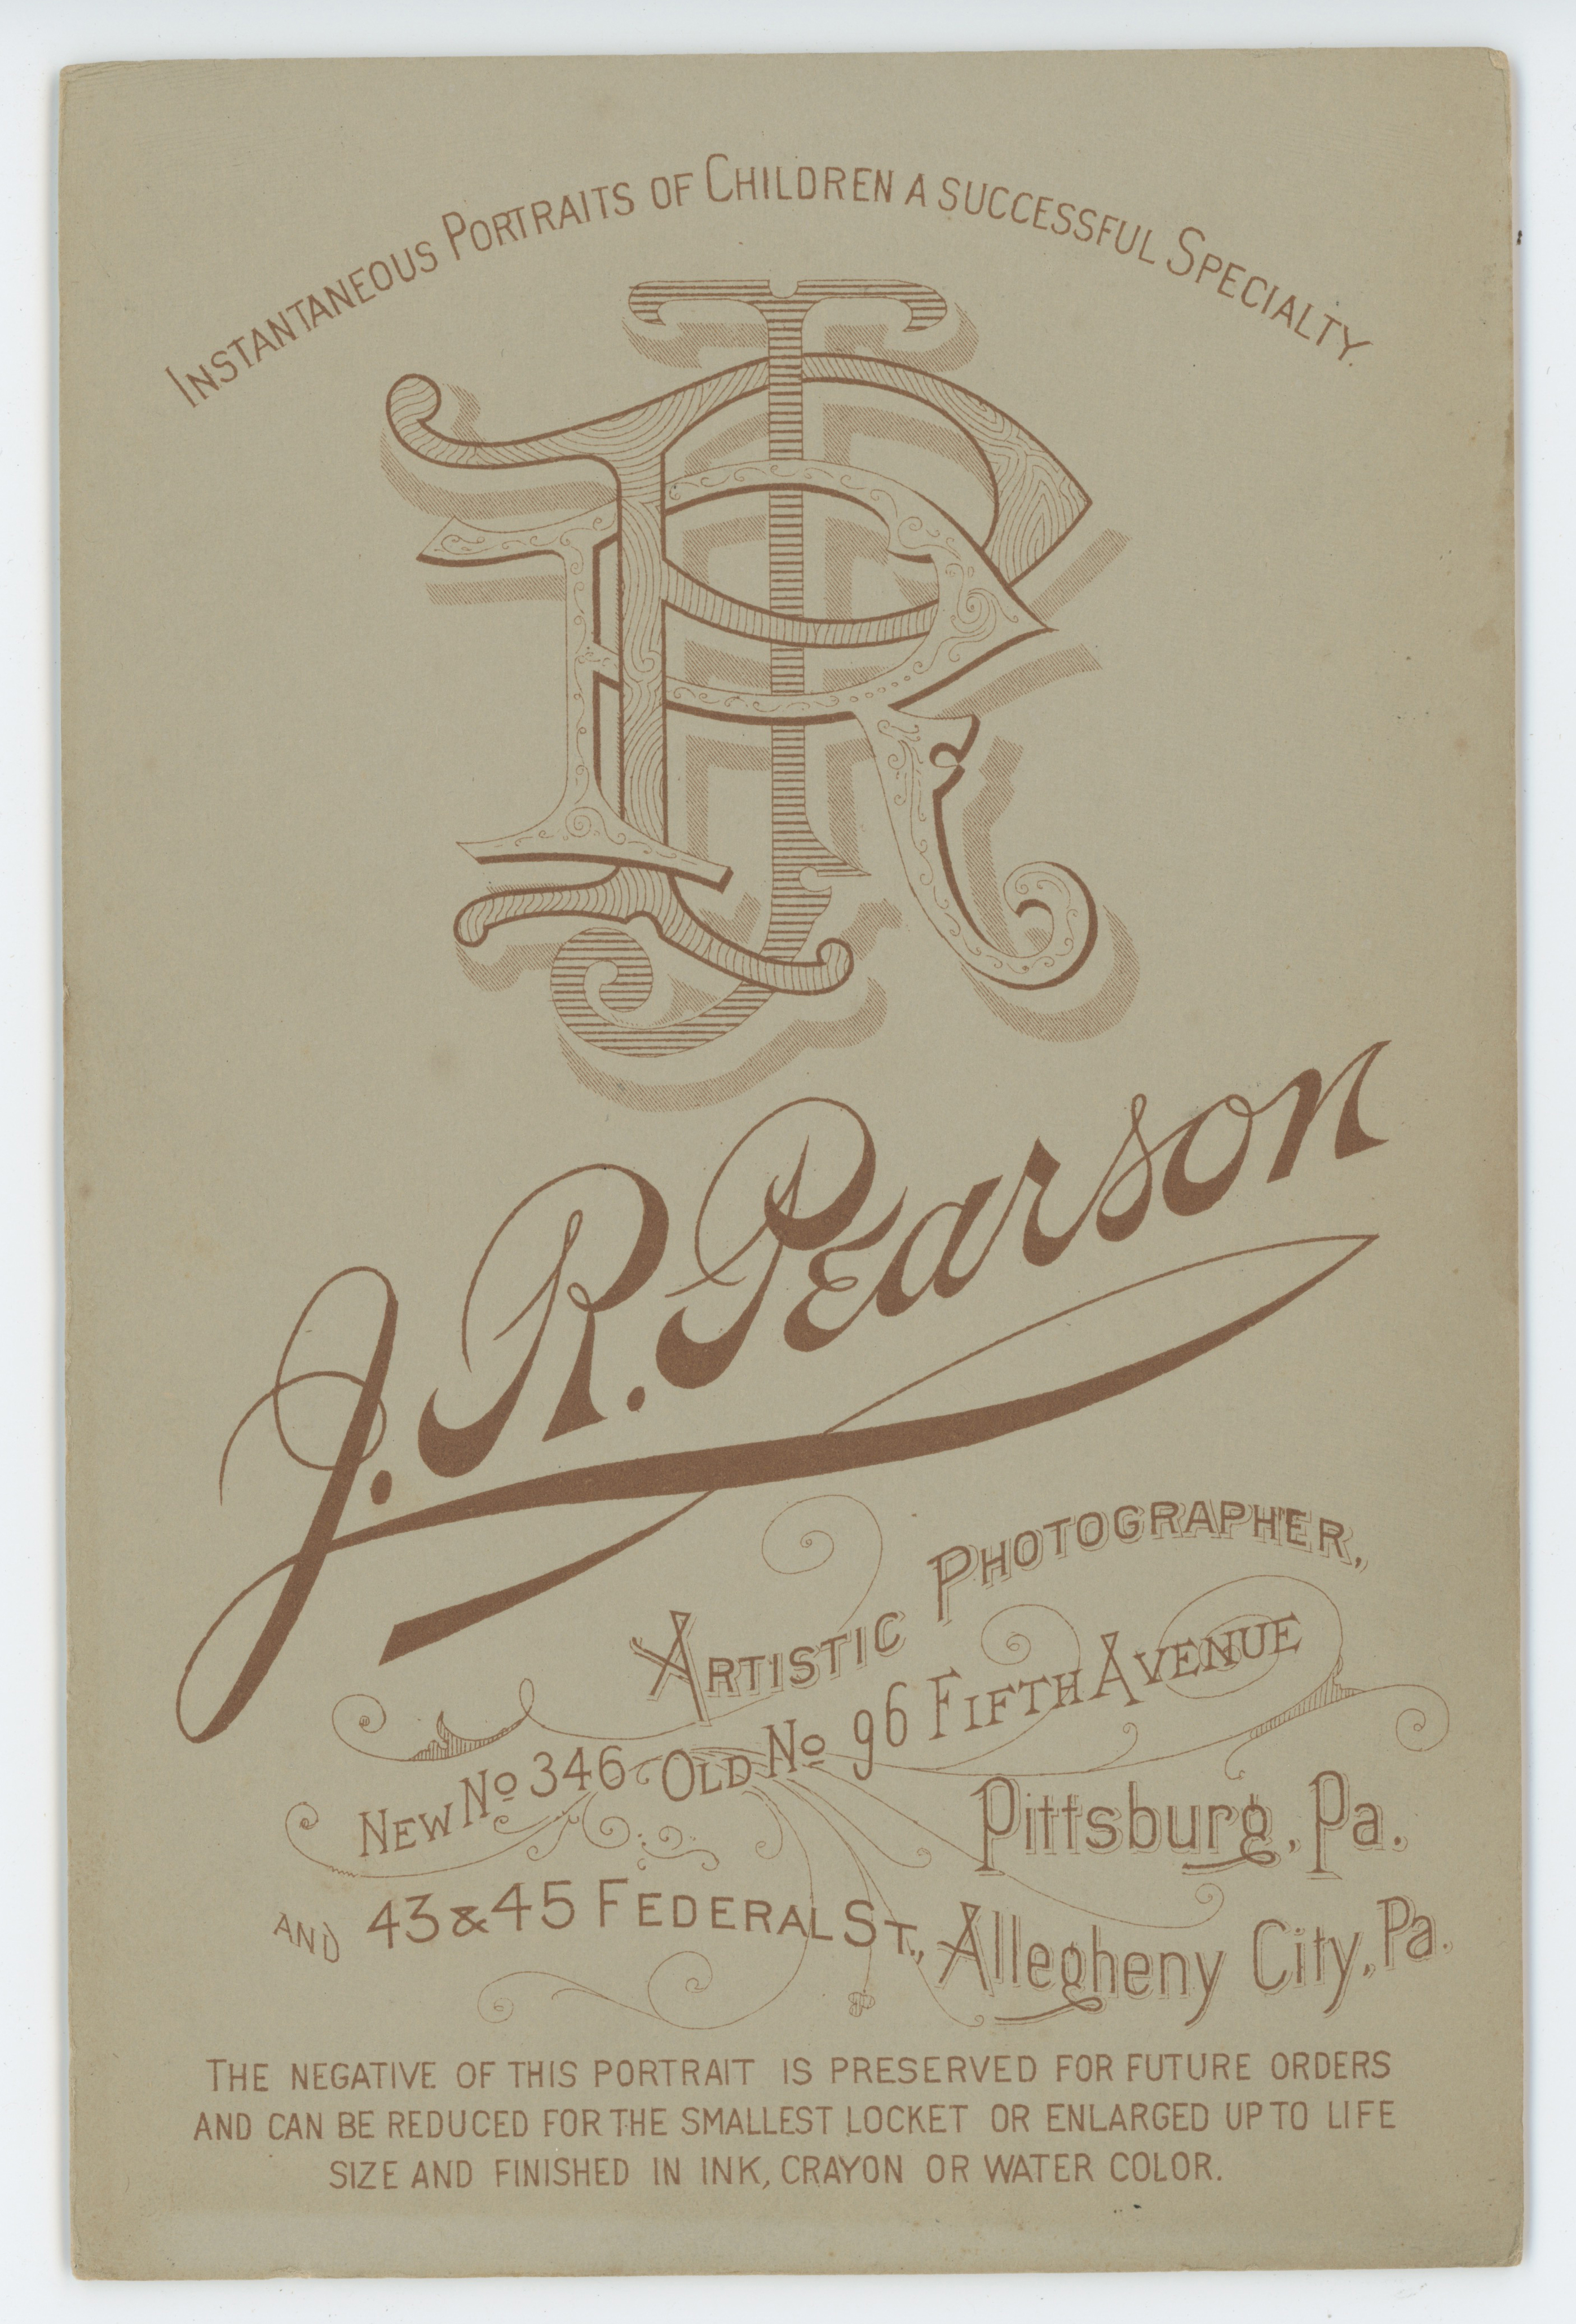 INSTANTANEOUS PORTRAITS OF CHILDREN A SUCCESSFUL SPECIALTY.
JRP
J. R. Pearson
ARTISTIC PHOTOGRAPHER,
NEW No 346 OLD No 96 FIFTH AVENUE
Pittsburg, Pa.
AND 43 & 45 FEDERAL ST., Allegheny City, Pa.
THE NEGATIVE OF THIS PORTRAIT IS PRESERVED FOR FUTURE ORDERS
AND CAN BE REDUCED FOR THE SMALLEST LOCKET OR ENLARGED UP TO LIFE
SIZE AND FINISHED IN INK, CRAYON OR WATER COLOR.